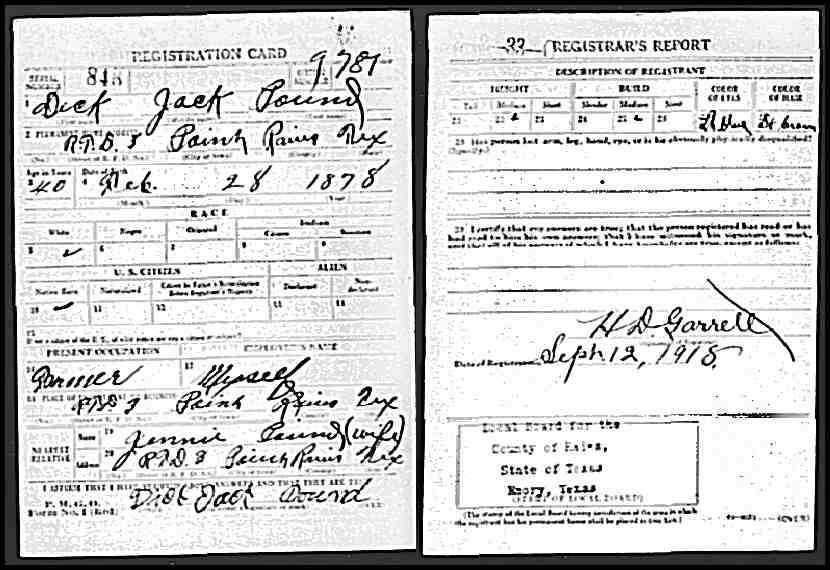 REGISTRATION CARD
SERIAL NUMBER 848 ORDER NUMBER 9781
1 Dick Jack Pound
2 PERMANENT HOME ADDRESS
R.F.D. 3 Point Rains Tex
Age in Years Date of Birth
40 Feb. 28 1878
(Month) (Day) (Year)
RACE
White Negro Oriental Indian
Citizen
5 ✓ 6 7 8 9
U. S. CITIZEN ALIEN
Native Born Naturalized Citizen by Father's Naturalization Before Registrant's Majority Declarant Non-declarant
10 ✓ 11 12 13 14
15
PRESENT OCCUPATION EMPLOYER'S NAME
Farmer 17 Myself
R.F.D 3 Point Rains Tex
NEAREST RELATIVE Name 19 Jennie Pound (wife)
Address 20 R.F.D. 3 Point Rains Tex
I AFFIRM THAT I HAVE VERIFIED ABOVE ANSWERS AND THAT THEY ARE TRUE
P. M. G. O.
Form No. 1 (Red) Dick Jack Pound
33 REGISTRAR'S REPORT
DESCRIPTION OF REGISTRANT
HEIGHT BUILD COLOR OF EYES COLOR OF HAIR
Tall Medium Short Slender Medium Stout
21 22 23 24 25 26 Lt Blue Lt brown
29 Has person lost arm, leg, hand, eye, or is he obviously physically disqualified?
(Specify.)
30 I certify that my answers are true; that the person registered has read or has
had read to him his own answers; that I have witnessed his signature or mark,
and that all of his answers of which I have knowledge are true, except as follows:
H D. Garrett
Date of Registration Sept. 12, 1918.
Local Board for the
County of Rains,
State of Texas
Emory, Texas
(STAMP OF LOCAL BOARD)
(The stamp of the Local Board having jurisdiction of the area in which
the registrant has his permanent home shall be placed in this box.)
(OVER)